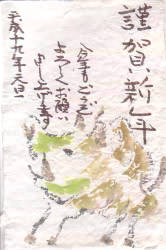 謹賀新年
今年もどうぞ
よろしくお願い
申し上げます
平成十九年元旦